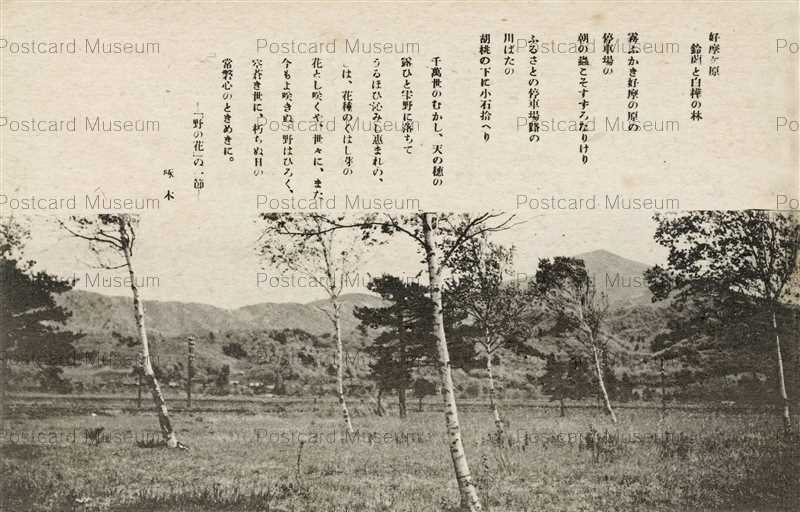 好摩ヶ原
鈴蘭と白樺の林
霧ふかき好摩の原の
停車場の
朝の蟲こそすずろなりけり
ふるさとの停車場路の
川ばたの
胡桃の下に小石拾へり
千萬世のむかし、天の穂の
露ひと雫野に落ちて
うるほひ沁みし恵まれの、
は、花種のくはし芽の
花とし咲くや、世々に、また
今もよ咲きぬ、野はひろく、
蒼き世に、朽ちぬ日の
常磐心のときめきに。
―「野の花」の一節―
啄木
Postcard Museum